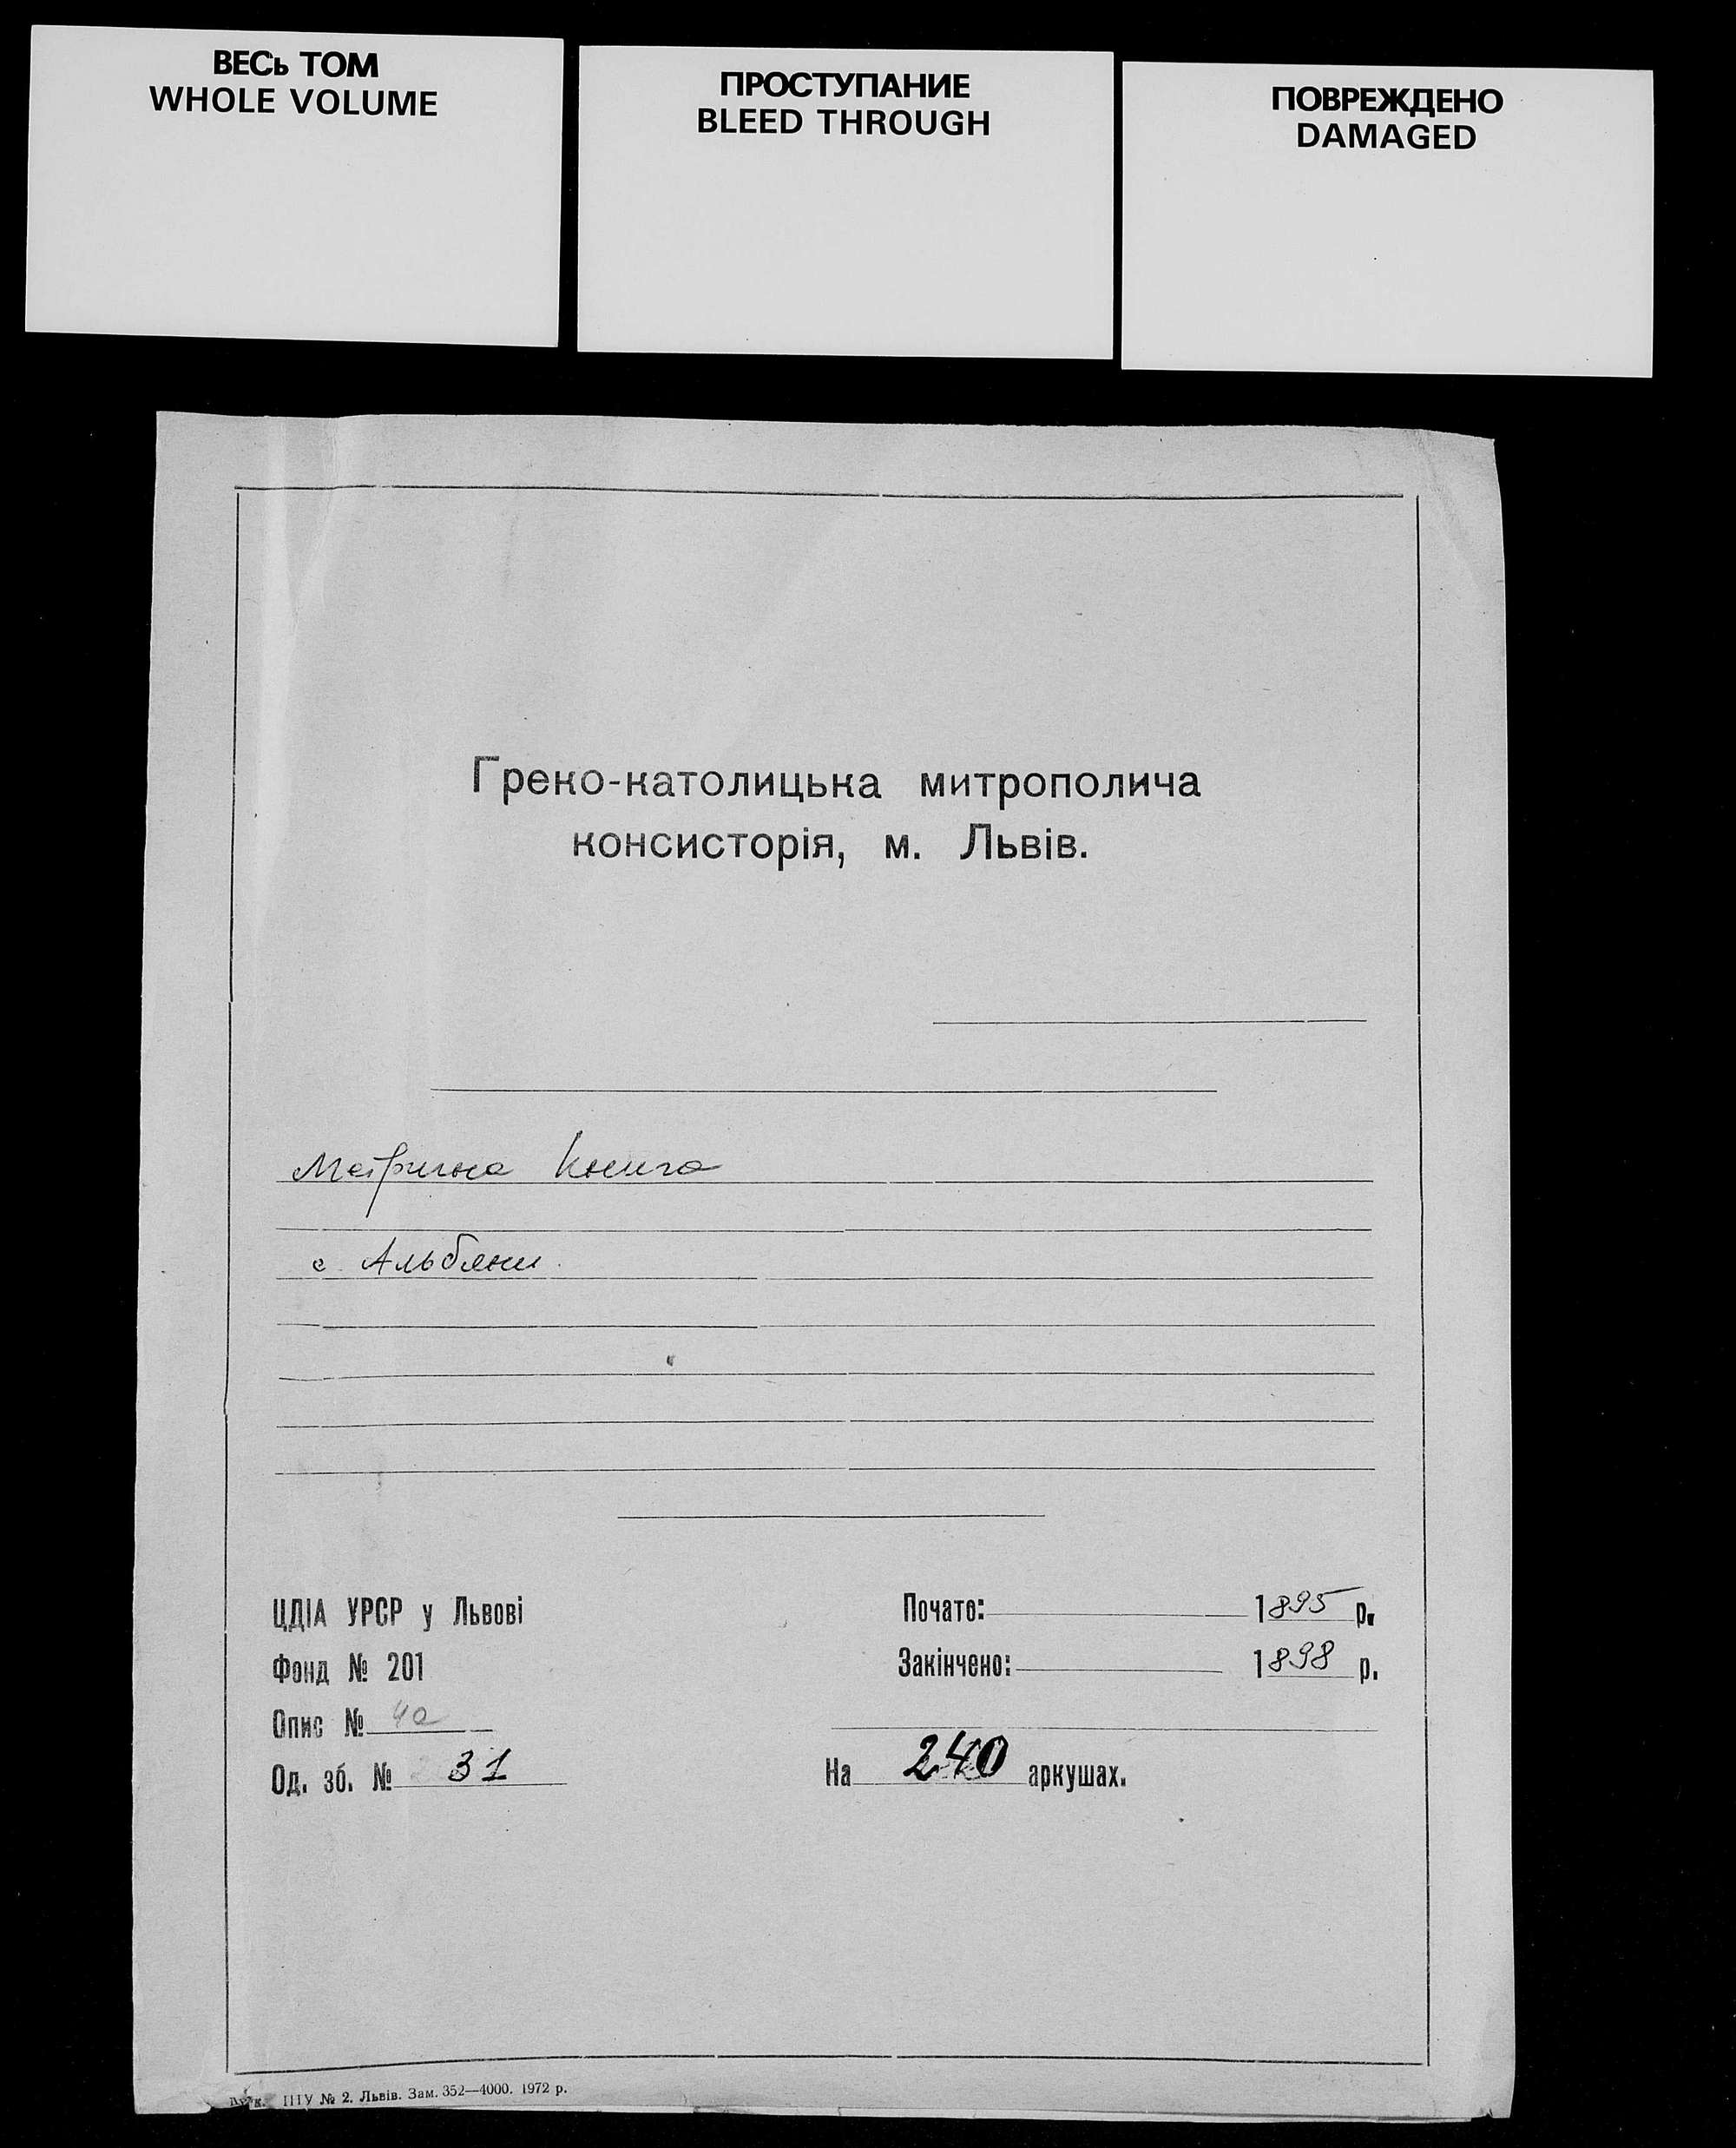 ВЕСЬ ТОМ
WHOLE VOLUME
ПРОСТУПАНИЕ
BLEED THROUGH
ПОВРЕЖДЕНО
DAMAGED
Греко-католицька митрополича
консисторія, м. Львів.
Метрична книга
с. Альбяни.
ЦДІА УРСР у Львові
Фонд № 201
Опис № 4а
Од. зб. № 31
Почато: 1895 р.
Закінчено: 1898 р.
На 240 аркушах.
Друк. ПТУ № 2. Львів. Зам. 352—4000. 1972 р.